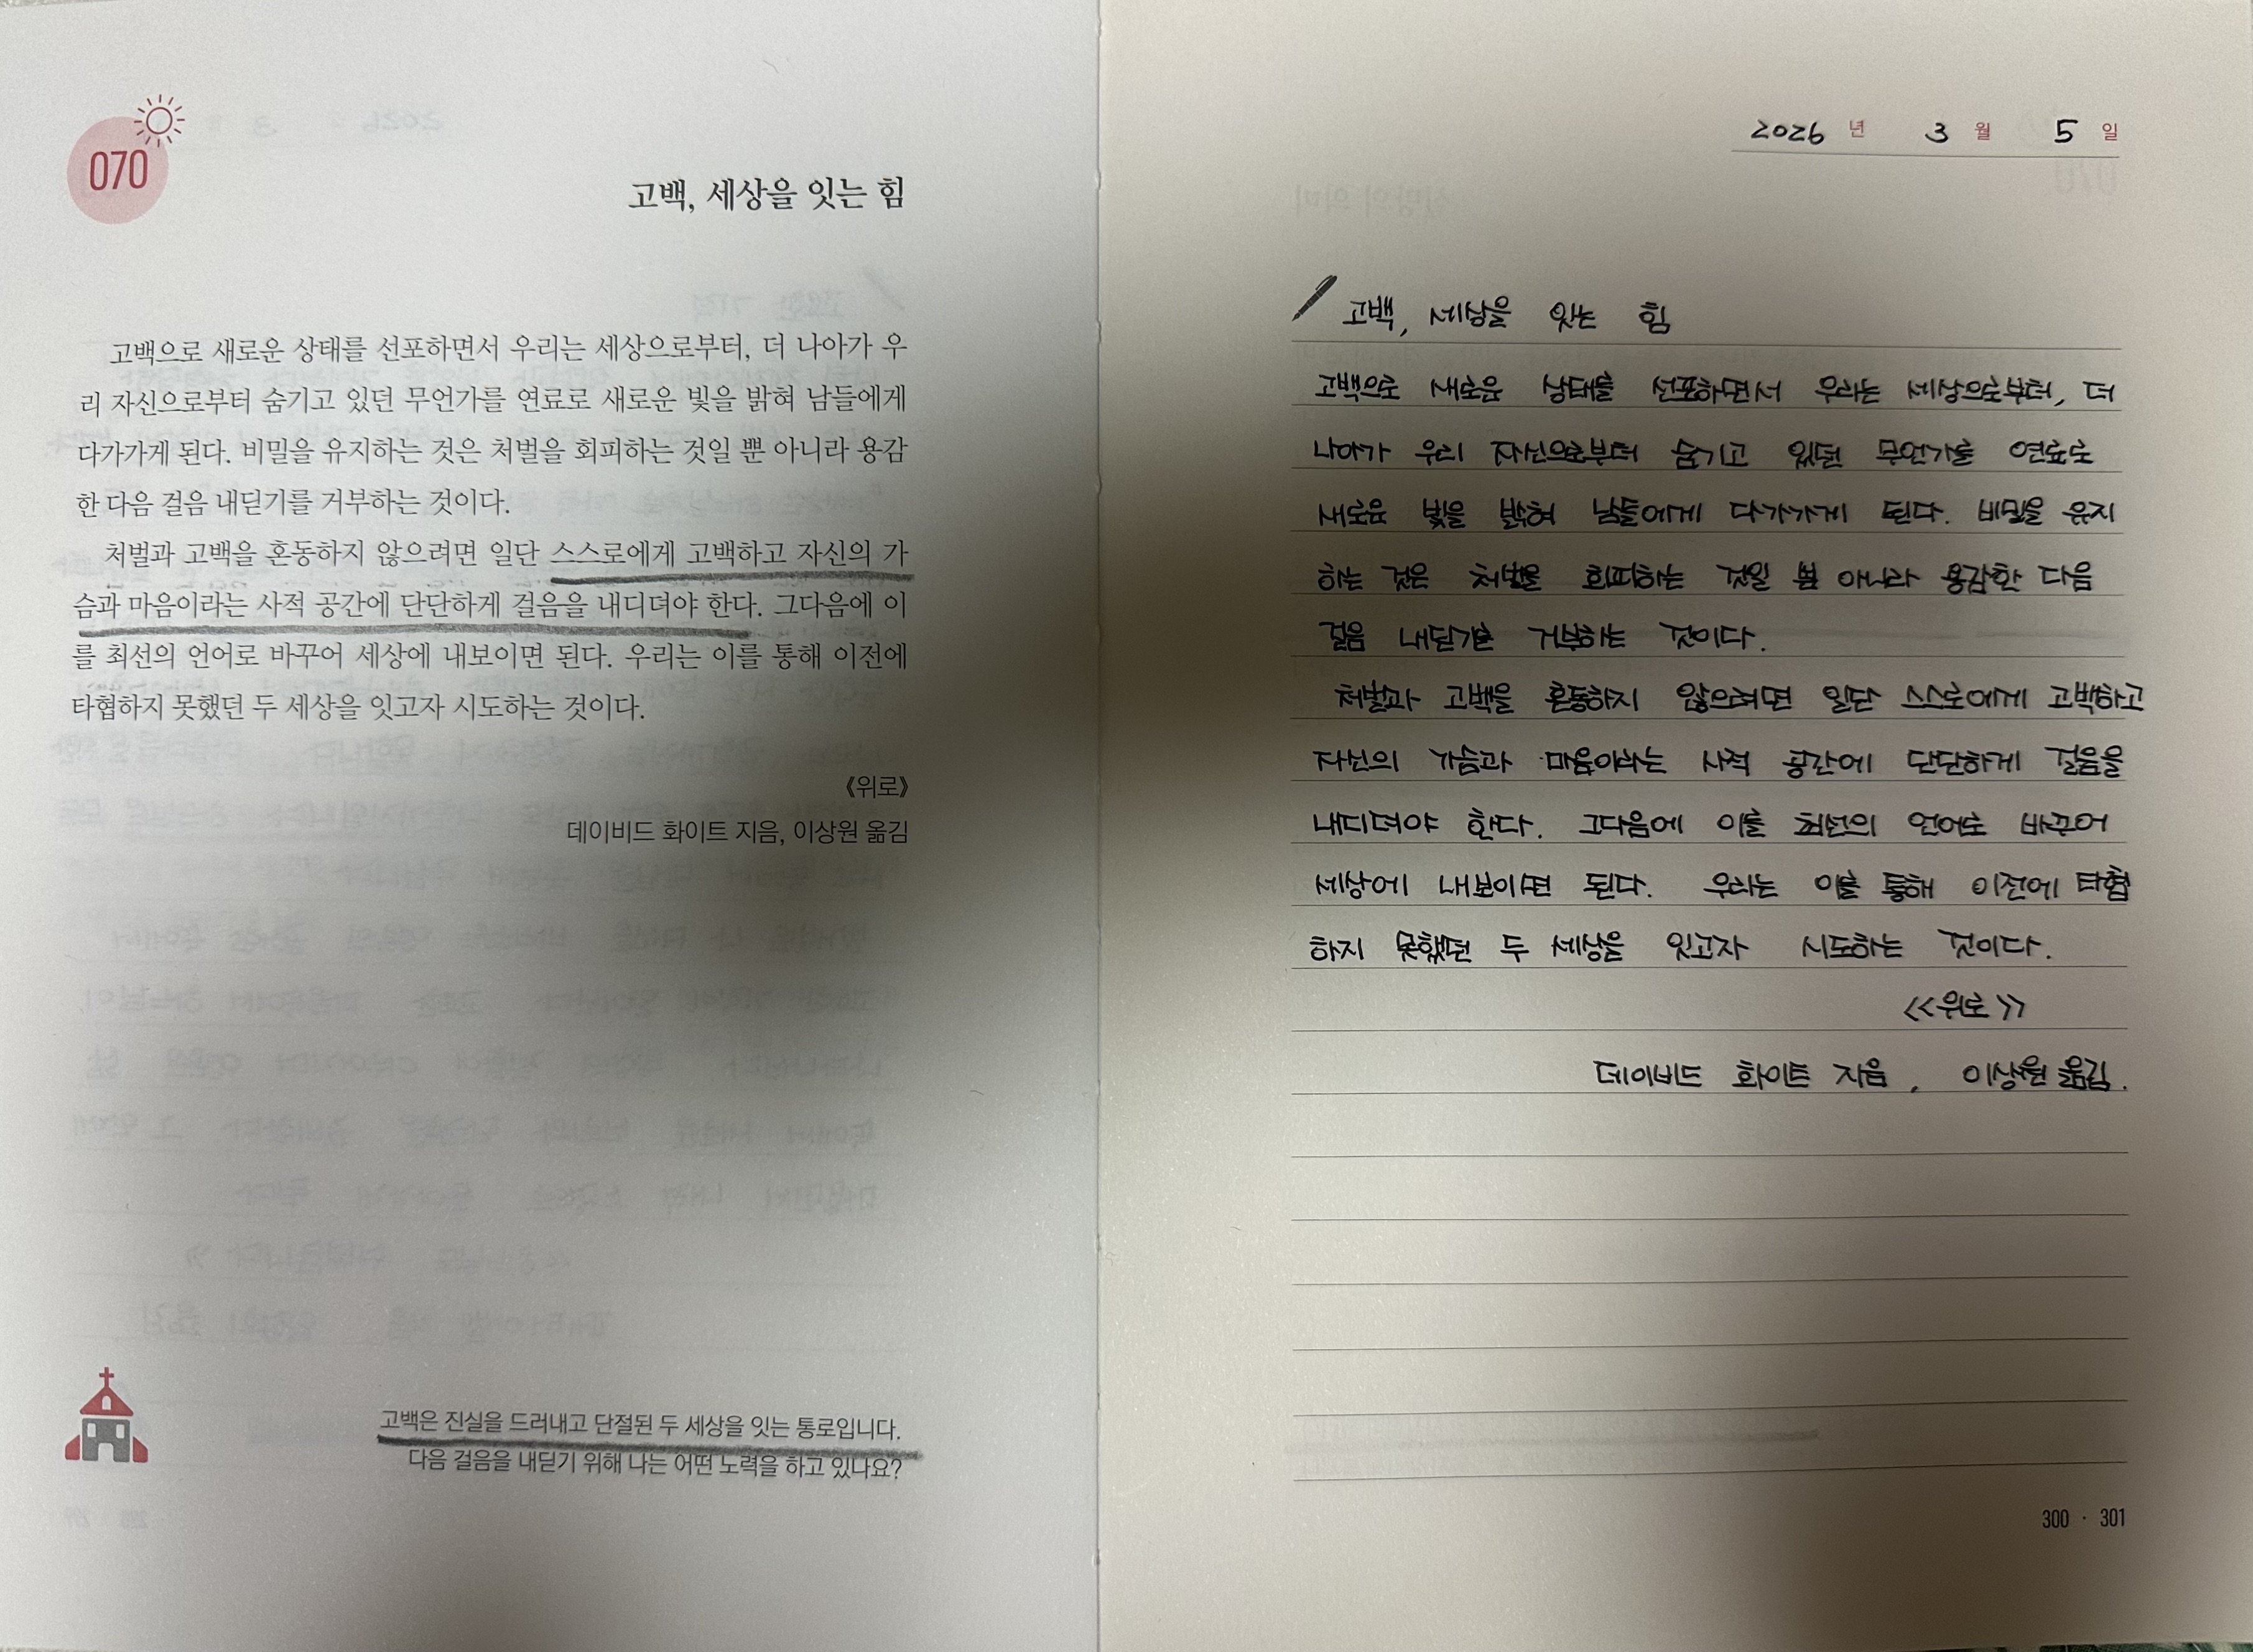 070
고백, 세상을 잇는 힘
고백으로 새로운 상태를 선포하면서 우리는 세상으로부터, 더 나아가 우
리 자신으로부터 숨기고 있던 무언가를 연료로 새로운 빛을 밝혀 남들에게
다가가게 된다. 비밀을 유지하는 것은 처벌을 회피하는 것일 뿐 아니라 용감
한 다음 걸음 내딛기를 거부하는 것이다.
처벌과 고백을 혼동하지 않으려면 일단 스스로에게 고백하고 자신의 가
슴과 마음이라는 사적 공간에 단단하게 걸음을 내디뎌야 한다. 그다음에 이
를 최선의 언어로 바꾸어 세상에 내보이면 된다. 우리는 이를 통해 이전에
타협하지 못했던 두 세상을 잇고자 시도하는 것이다.
《위로》
데이비드 화이트 지음, 이상원 옮김
고백은 진실을 드러내고 단절된 두 세상을 잇는 통로입니다.
다음 걸음을 내딛기 위해 나는 어떤 노력을 하고 있나요?
2026 년 3 월 5 일
고백, 세상을 잇는 힘
고백으로 새로운 상태를 선포하면서 우리는 세상으로부터, 더
나아가 우리 자신으로부터 숨기고 있던 무언가를 연료로
새로운 빛을 밝혀 남들에게 다가가게 된다. 비밀을 유지
하는 것은 처벌을 회피하는 것일 뿐 아니라 용감한 다음
걸음 내딛기를 거부하는 것이다.
처벌과 고백을 혼동하지 않으려면 일단 스스로에게 고백하고
자신의 가슴과 마음이라는 사적 공간에 단단하게 걸음을
내디뎌야 한다. 그다음에 이를 최선의 언어로 바꾸어
세상에 내보이면 된다. 우리는 이를 통해 이전에 타협
하지 못했던 두 세상을 잇고자 시도하는 것이다.
<<위로>>
데이비드 화이트 지음, 이상원 옮김.
300 · 301